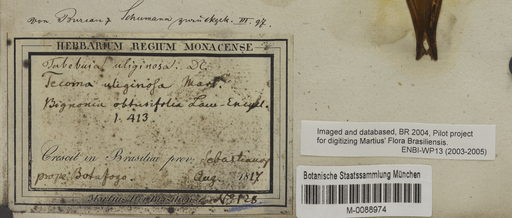 von Bureau & Schumann, zurückgek. VI. 97.
HERBARIUM REGIUM MONACENSE
Tabebuia uliginosa. DC.
Tecoma uliginosa Mart.
Bignonia obtusifolia Lam. Encycl.
1. 413
Crescit in Brasiliae prov. Sebastianop.
prope Botafogo. Aug. 1817
Martius
No 128
Imaged and databased, BR 2004, Pilot project
for digitizing Martius' Flora Brasiliensis.
ENBI-WP13 (2003-2005)
Botanische Staatssammlung München
M-0088974